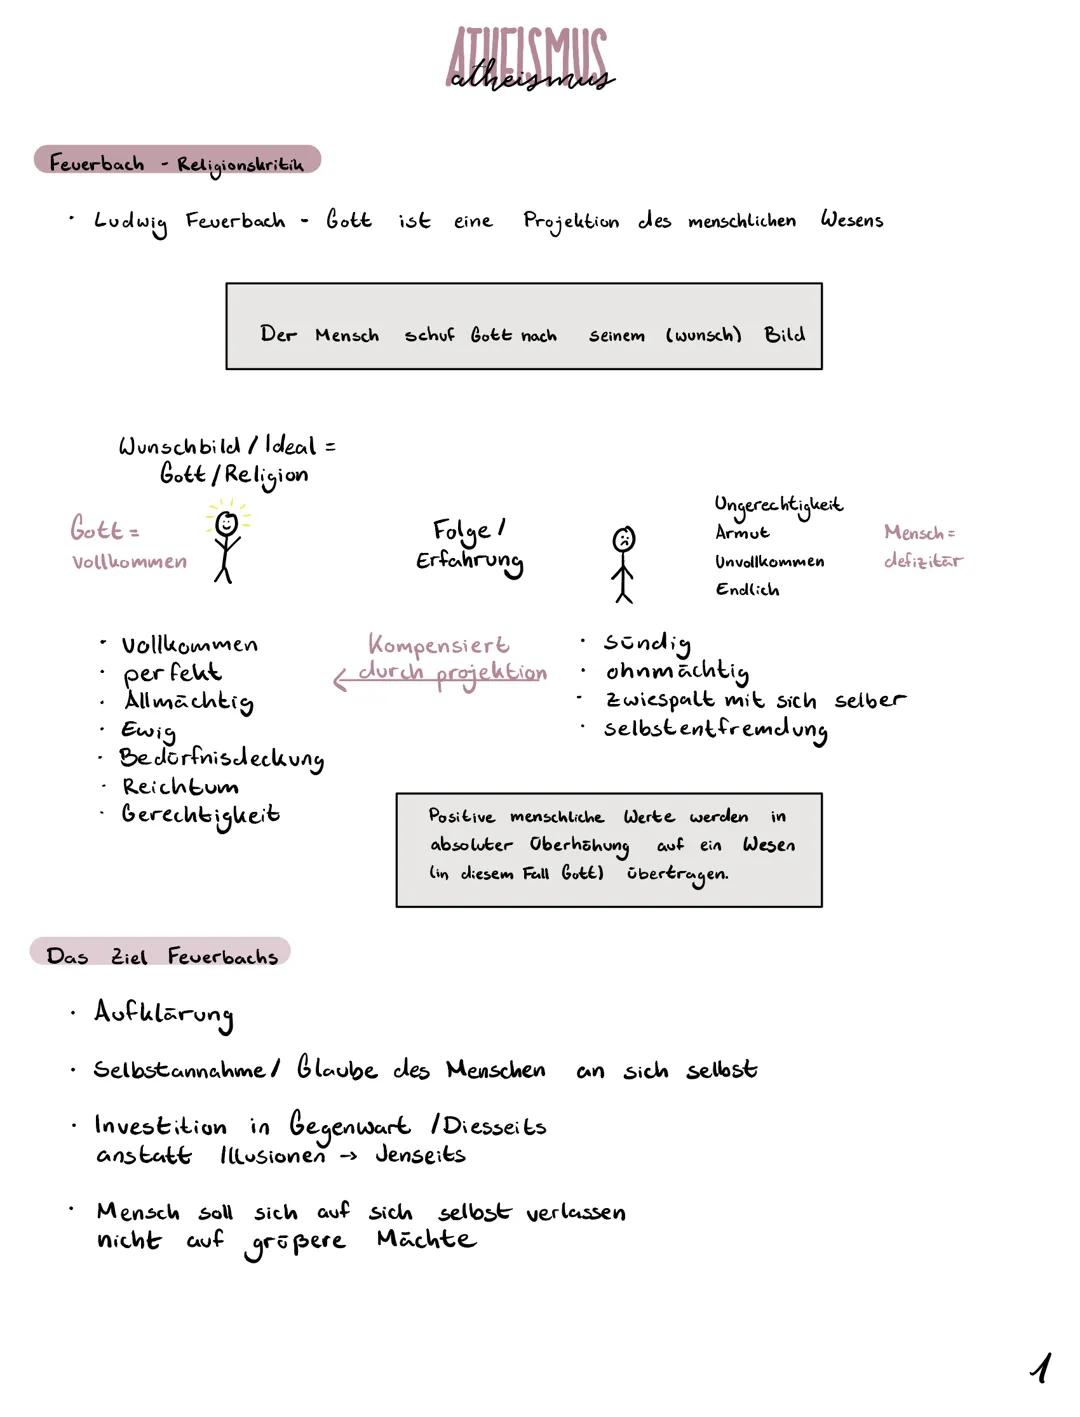 ATHEISMUS
atheismus
Feuerbach - Religionskritik
· Ludwig Feuerbach - Gott ist eine Projektion des menschlichen Wesens
Der Mensch schuf Gott nach seinem (wunsch) Bild
Wunschbild / Ideal =
Gott / Religion
Gott =
vollkommen
Folge /
Erfahrung
Ungerechtigkeit
Armut
Unvollkommen
Endlich
Mensch =
defizitär
· Vollkommen
· perfekt
· Allmächtig
· Ewig
· Bedürfnisdeckung
· Reichtum
· Gerechtigkeit
Kompensiert
← durch projektion
· sündig
· ohnmächtig
- zwiespalt mit sich selber
· selbstentfremdung
Positive menschliche Werte werden in
absoluter Überhöhung auf ein Wesen
(in diesem Fall Gott) übertragen.
Das Ziel Feuerbachs
· Aufklärung
· Selbstannahme / Glaube des Menschen an sich selbst
· Investition in Gegenwart / Diesseits
anstatt Illusionen → Jenseits
· Mensch soll sich auf sich selbst verlassen
nicht auf größere Mächte
1